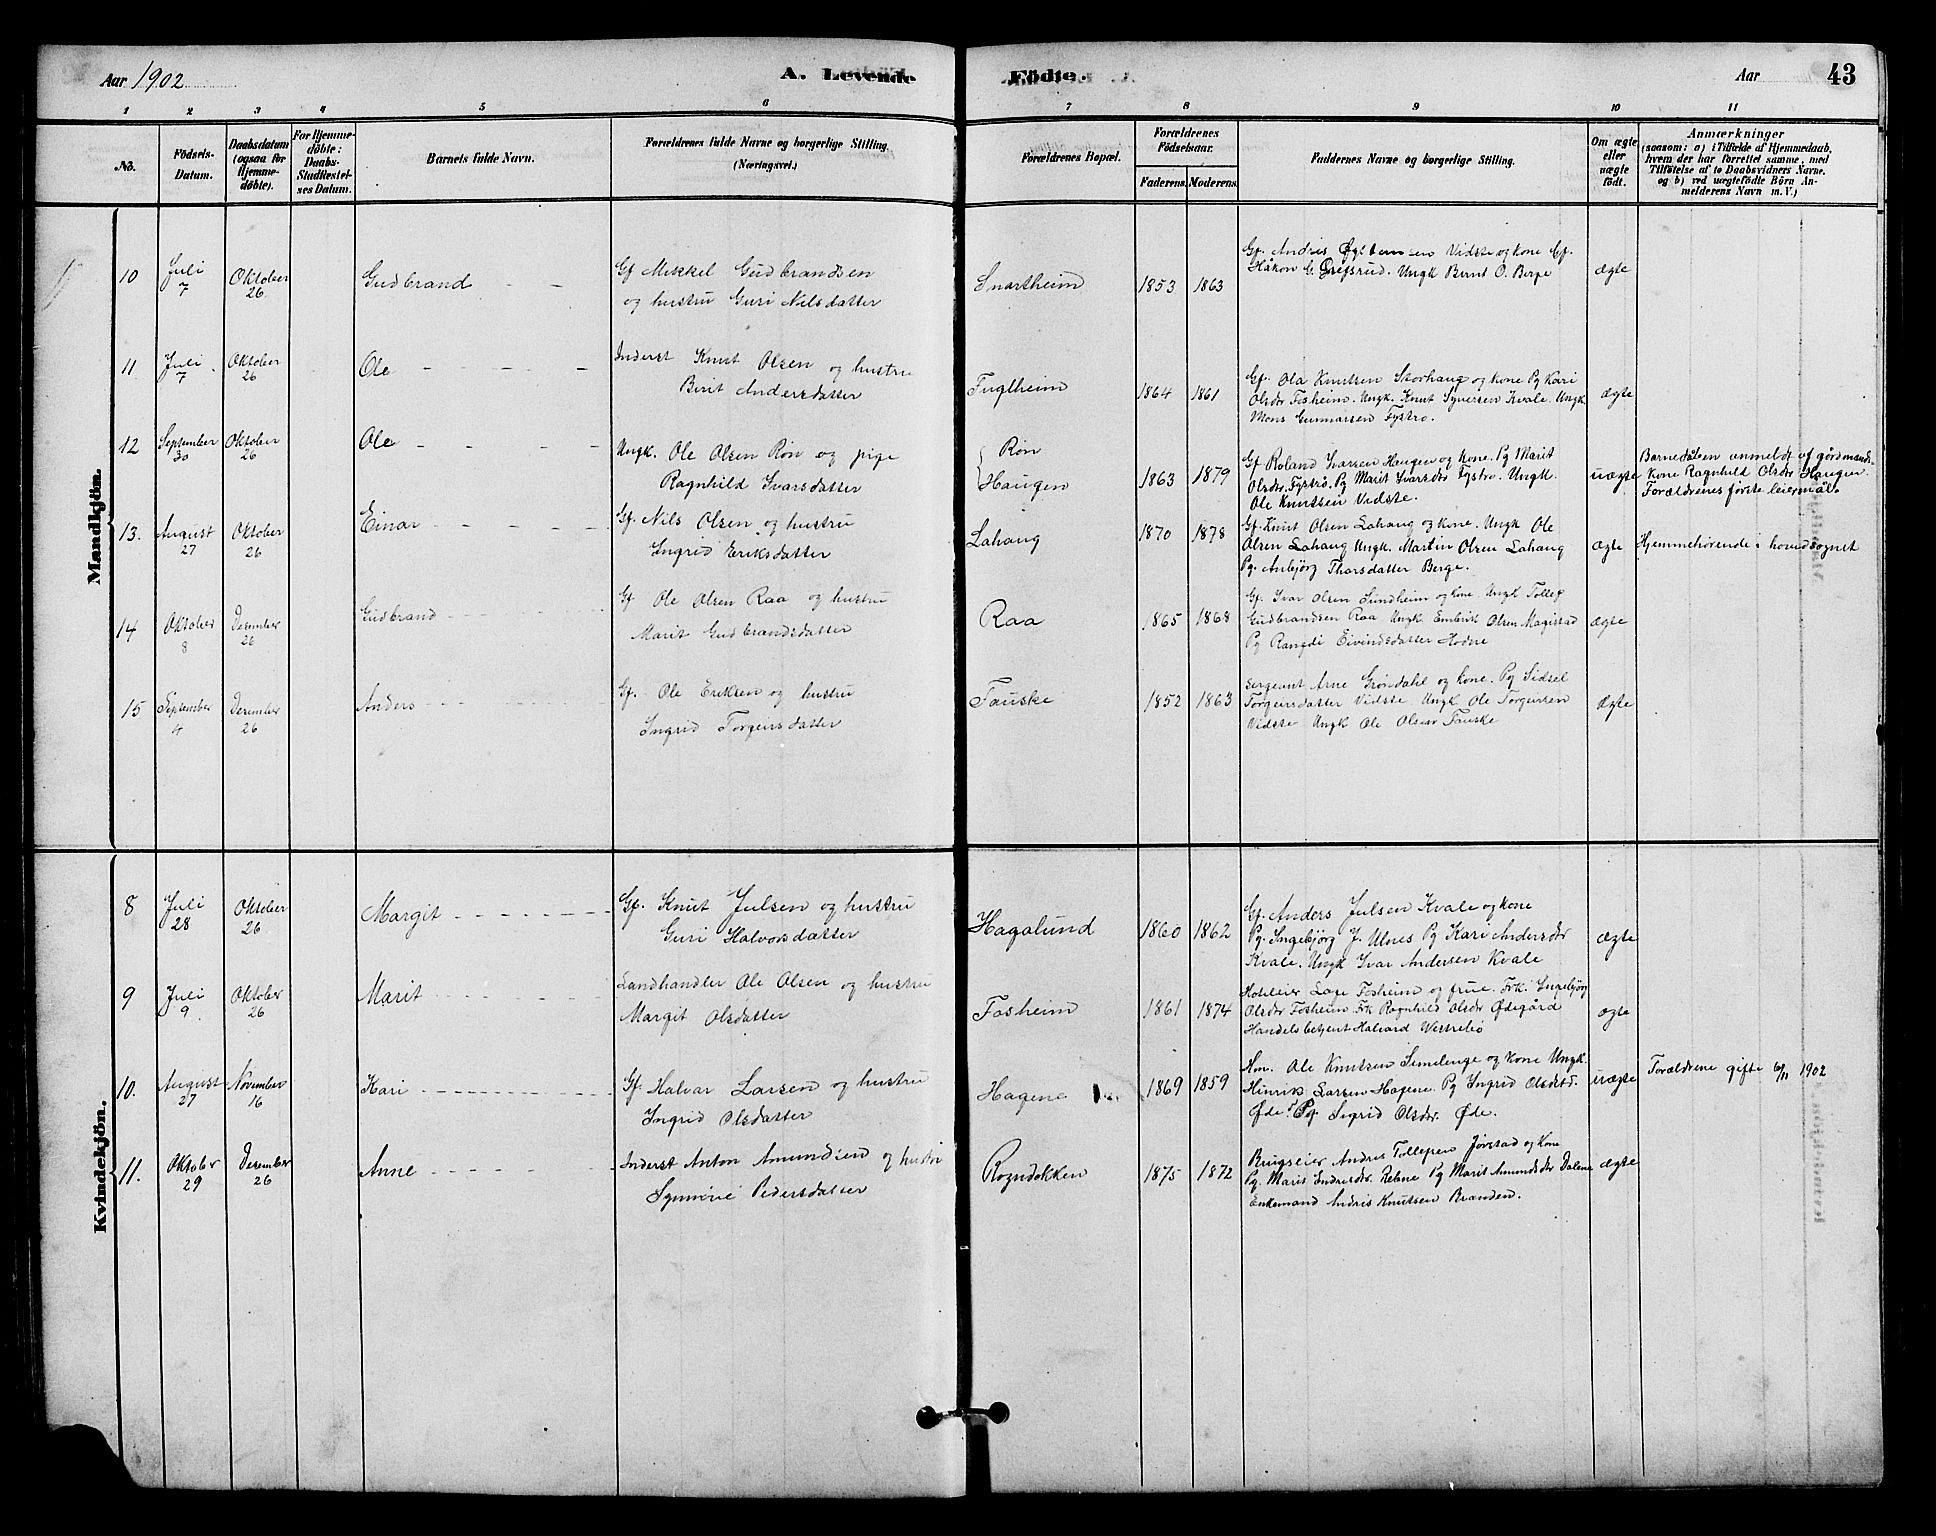 Aar 1902
A. Levende
Födte.
Aar
43
1 2 3 4 5 6 7 8 9 10 11
No.
Födsels-
Datum.
Daabsdatum
(ogsaa for
Hjemme-
döbte).
For Hjemme-
döbte:
Daabs-
Stadfæstel-
ses Datum.
Barnets fulde Navn.
Forældrenes fulde Navne og borgerlige Stilling.
(Næringsvei.)
Forældrenes Bopæl.
Forældrenes
Födselsaar.
Faderens. Moderens.
Faddernes Navne og borgerlige Stilling.
Om ægte
eller
uægte
födt.
Anmærkninger
(saasom: a) i Tilfælde af Hjemmedaab,
hvem der har forrettet samme, med
Tilföielse af to Daabsvidners Navne,
og b) ved uægtefödte Börn An-
melderens Navn m. V.)
Mandkjön.
10 Juli 7 Oktober 26 Gudbrand
Gf Mikkel Gudbrandsen
og hustru Guri Nilsdatter
Snartheim 1853 1863
Gf. Andris Vidste og kone Gf.
Håkon G. Grefsrud. Ungk Bernt O. Berge
ægte
11 Juli 7 Oktober 26 Ole
Inderst Knut Olsen og hustru
Berit Andersdatter
Fuglheim 1864 1861
Gf. Ola Knutsen Storhaug og kone Pg Kari
Olsdtr Fosheim. Ungk. Knut Syversen Kvale. Ungk
Mons Gunnarsen Fystro.
ægte
12 September 30 Oktober 26 Ole
Ungk. Ole Olsen Røn og pige
Ragnhild Ivarsdatter
Røn
Haugen 1863 1879
Gf Roland Ivarsen Haugen og kone. Pg Marit
Olsdtr. Fystrø, Pg Marit Ivarsdtr Fystro. Ungk.
Ole Knutsen Vidste.
uægte
Barnedåben anmeldt af gårdmands-
kone Ragnhild Olsdtr Haugen.
Forældrenes første leiermål.
13. August 27 Oktober 26 Einar
Gf. Nils Olsen og hustru
Ingrid Eriksdatter
Lahaug 1870 1878
Gf. Knut Olsen Lahaug og kone. Ungk Ole
Olsen Lahaug Ungk. Martin Olsen Lahaug
Pg. Anbjørg Thorsdatter Berge.
ægte
Hjemmehørende i hovedsognet
14 Oktober 8 Desember 26 Gudbrand
Gf. Ole Olsen Raa og hustru
Marit Gudbrandsdatter
Raa 1865 1868
Gf. Ivar Olsen Sundheim og kone Ungk Tollef
Gudbrandsen Raa Ungk. Embrik Olsen Magistad
Pg Rangdi Eivindsdatter Hodne
ægte
15 September 4 Desember 26 Anders
Gf. Ole Eriksen og hustru
Ingrid Torgeirsdatter
Fauske 1852 1863
Sergeant Arne Grøndahl og kone. Pg Sidsel
Torgeirsdatter Vidste Ungk Ole Torgeirsen
Vidste Ungk Ole Olsen Fauske
ægte
Kvindekjön.
8 Juli 28 Oktober 26 Margit
Gf. Knut Julsen og hustru
Guri Halvorsdatter
Hagalund 1860 1862
Gf. Anders Julsen Kvale og kone
Pg. Ingebjørg J. Ulnes Pg Kari Andersdtr
Kvale. Ungk Ivar Andersen Kvale
ægte
9 Juli 9. Oktober 26 Marit
Landhandler Ole Olsen og hustru
Margit Olsdatter
Fosheim 1861 1874
Hoteleier Lage Fosheim og frue. Frk. Ingebjørg
Olsdtr Fosheim Frk Ragnhild Olsdtr Ødegård
Handelsbetjent Halvard Westrelió
ægte
10. August 27 November 16 Kari
Gf. Halvar Larsen og hustru
Ingrid Olsdatter
Hagene 1869 1859
Hm. Ole Knutsen Semelenge og kone Ungk.
Hinrik Larsen Hagene. Pg Ingrid Olsdtr.
Øde. Pg. Sigrid Olsdtr. Øde.
uægte
Forældrene gifte 6/11 1902
11. Oktober 29 Desember 26 Anne
Inderst Anton Amundsen og hustru
Synnøve Pedersdatter
Rogndokken 1875 1872
Brugseier Andris Tollefsen Jørstad og kone
Pg. Marit Endresdtr. Rebne Pg Marit Amundsdtr Dalene
Enkemand Andris Knutsen Branden.
ægte